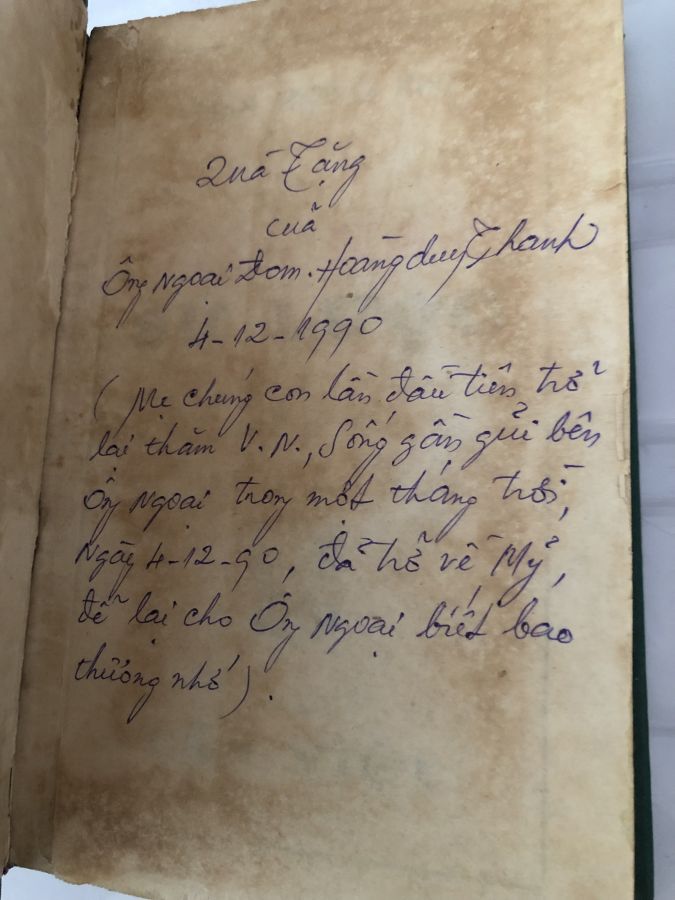 Quà Tặng
của
Ông Ngoại Đom. Hoàng duy Thanh
4-12-1990
( Mẹ chúng con lần đầu tiên trở
lại thăm V.N., sống gần gửi bên
Ông Ngoại trong một tháng trời,
Ngày 4-12-90, đã trở về Mỹ,
để lại cho Ông Ngoại biết bao
thương nhớ ).